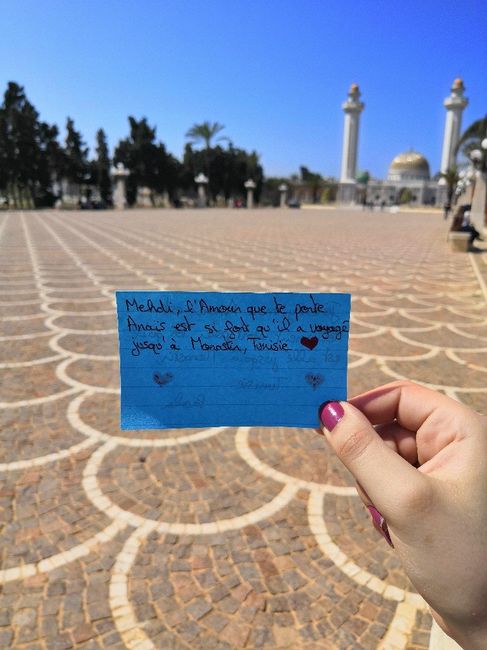 Mehdi, l'Amour que te porte
Anaïs est si fort qu'il a voyagé
jusqu'à Monastir, Tunisie